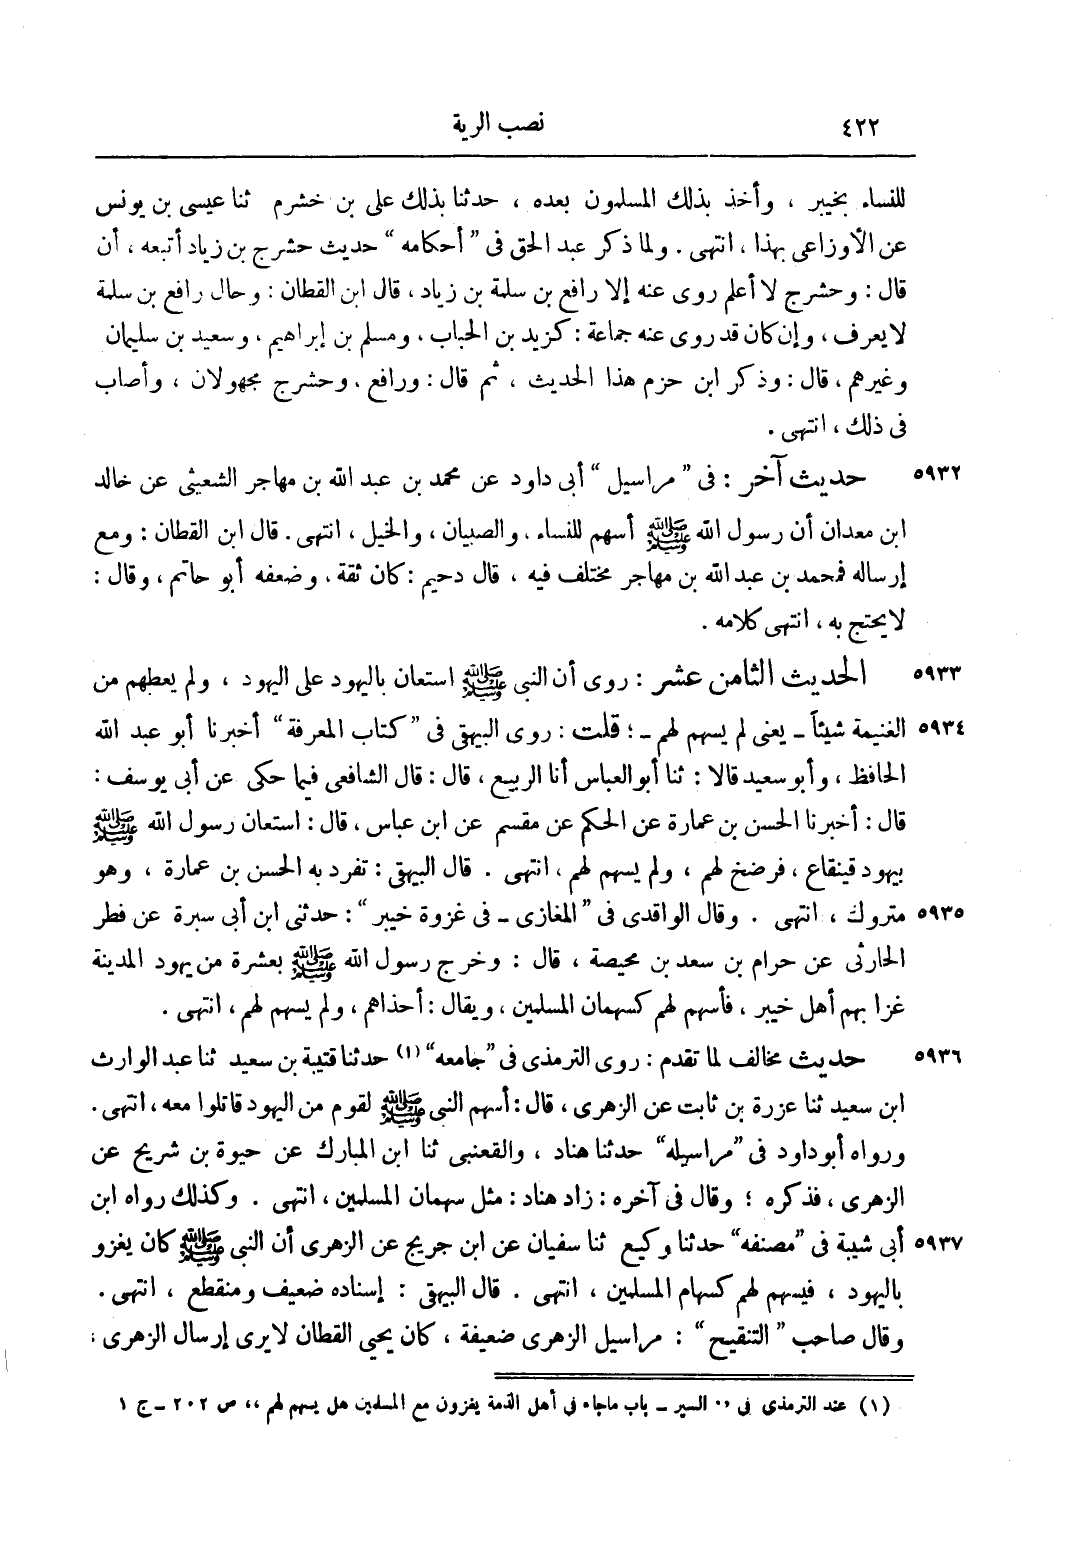 ٤٢٢ نصب الرية
للنساء بخيبر ، وأخذ بذلك المسلمون بعده ، حدثنا بذلك على بن خشرم ثنا عيسى بن يونس
عن الأوزاعى بهذا ، انتهى . ولما ذكر عبد الحق فى " أحكامه " حديث حشرج بن زياد أتبعه ، أن
قال : وحشرج لا أعلم روى عنه إلا رافع بن سلمة بن زياد ، قال ابن القطان : وحال رافع بن سلمة
لا يعرف ، وإن كان قد روى عنه جماعة : كزيد بن الحباب ، ومسلم بن إبراهيم ، وسعيد بن سليمان
وغيرهم ، قال : وذكر ابن حزم هذا الحديث ، ثم قال : ورافع ، وحشرج مجهولان ، وأصاب
فى ذلك ، انتهى .
٥٩٣٢ حديث آخر : فى " مراسيل " أبى داود عن محمد بن عبد الله بن مهاجر الشعيثى عن خالد
ابن معدان أن رسول الله ﷺ أسهم للنساء ، والصبيان ، والخيل ، انتهى . قال ابن القطان : ومع
إرساله فمحمد بن عبد الله بن مهاجر مختلف فيه ، قال دحيم : كان ثقة ، وضعفه أبو حاتم ، وقال :
لا يحتج به ، انتهى كلامه .
٥٩٣٣ الحديث الثامن عشر : روى أن النبى ﷺ استعان باليهود على اليهود ، ولم يعطهم من
٥٩٣٤ الغنيمة شيئاً ـ يعنى لم يسهم لهم ـ ؛ قلت : روى البيهقى فى " كتاب المعرفة " أخبرنا أبو عبد الله
الحافظ ، وأبو سعيد قالا : ثنا أبو العباس أنا الربيع ، قال : قال الشافعى فيما حكى عن أبى يوسف :
قال : أخبرنا الحسن بن عمارة عن الحكم عن مقسم عن ابن عباس ، قال : استعان رسول الله ﷺ
بيهود قينقاع ، فرضخ لهم ، ولم يسهم لهم ، انتهى . قال البيهقى : تفرد به الحسن بن عمارة ، وهو
٥٩٣٥ متروك ، انتهى . وقال الواقدى فى " المغازى ـ فى غزوة خيبر " : حدثنى ابن أبى سبرة عن فطر
الحارثى عن حرام بن سعد بن محيصة ، قال : وخرج رسول الله ﷺ بعشرة من يهود المدينة
غزا بهم أهل خيبر ، فأسهم لهم كسهمان المسلمين ، ويقال : أحذاهم ، ولم يسهم لهم ، انتهى .
٥٩٣٦ حديث مخالف لما تقدم : روى الترمذى فى " جامعه " (١) حدثنا قتيبة بن سعيد ثنا عبد الوارث
ابن سعيد ثنا عزرة بن ثابت عن الزهرى ، قال : أسهم النبى ﷺ لقوم من اليهود قاتلوا معه ، انتهى .
ورواه أبو داود فى " مراسيله " حدثنا هناد ، والقعنبى ثنا ابن المبارك عن حيوة بن شريح عن
الزهرى ، فذكره ؛ وقال فى آخره : زاد هناد : مثل سهمان المسلمين ، انتهى . وكذلك رواه ابن
٥٩٣٧ أبى شيبة فى " مصنفه " حدثنا وكيع ثنا سفيان عن ابن جريج عن الزهرى أن النبى ﷺ كان يغزو
باليهود ، فيسهم لهم كسهام المسلمين ، انتهى . قال البيهقى : إسناده ضعيف ومنقطع ، انتهى .
وقال صاحب " التنقيح " : مراسيل الزهرى ضعيفة ، كان يحيى القطان لا يرى إرسال الزهرى ،
(١) عند الترمذى فى ،، السير ـ باب ماجاء فى أهل الذمة يغزون مع المسلمين هل يسهم لهم ،، ص ٢٠٢ ـ ج ١